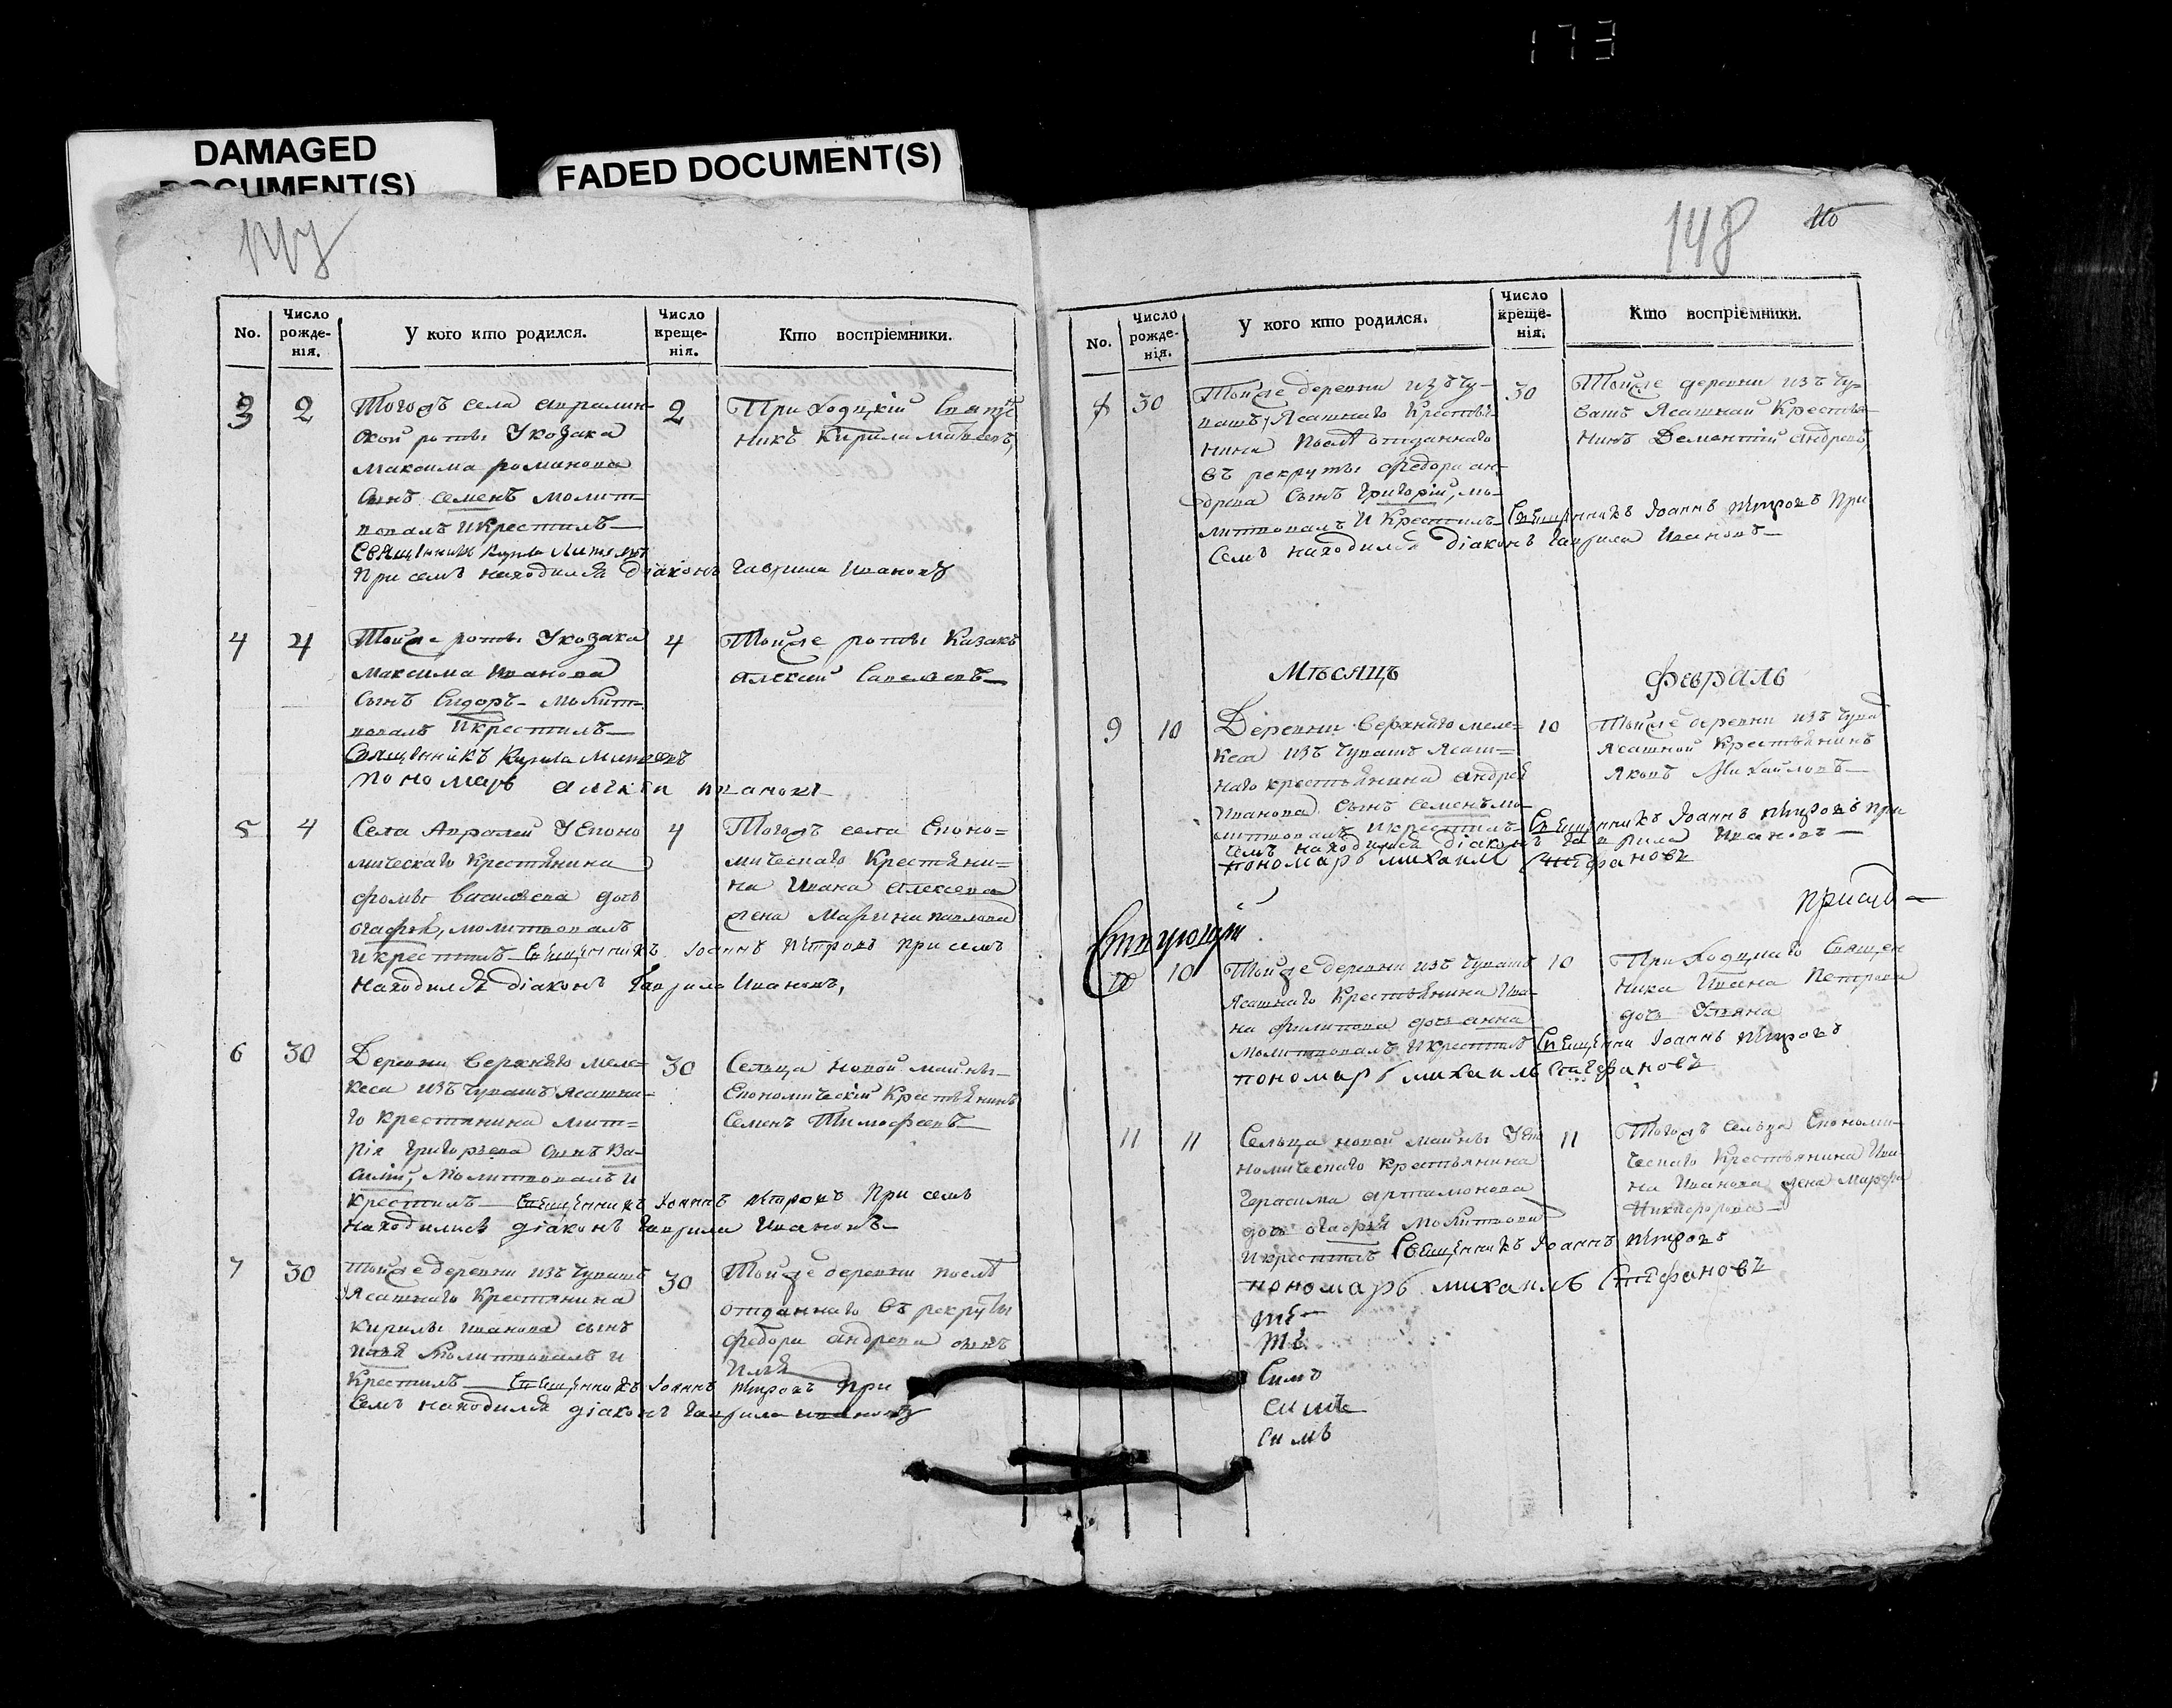 173
DAMAGED
DOCUMENT(S)
FADED DOCUMENT(S)
148
No.
Число рожде-нія.
У кого кто родился.
Число креще-нія.
Кто воспріемники.
3
2
Тогожъ села Апралин-
ской роты У козака
Максима романова
Сынъ семенъ молит-
вовалъ И крестилъ
Священникъ
При семъ находился діаконъ Гаврила Ивановъ
2
Приходцкій Священ
никъ Кирила Матвеевъ,
4
4
Тойже роты У козака
Максима Иванова
Сынъ Сидоръ - молит-
вовалъ И крестилъ
Священникъ Кирила
пономарь
4
Тойже роты Казакъ
Алексий Савельевъ
5
4
Села У Еконо
мическаго Крестьянина
фомы Василева дочь
Агафья, молитвовалъ
И крестилъ Священникъ Іоаннъ Петровъ При семъ
находился діаконъ Гаврила Ивановъ,
4
Тогожъ села Еконо=
мическаго Крестьяни=
на Ивана Алексева
жена Марѵна павлова
6
30
Деревни Верхняго меле=
кеса изъ Чувашъ Ясашна-
го крестянина Мит=
рія Григорьева Сынъ Ва-
силій, молитвовалъ и
крестилъ Священникъ Іоаннъ Петровъ При семъ
находился діаконъ Гаврила Ивановъ
30
Сельца новой майны
Економическій Крестьянинъ
Семенъ Тимофеевъ
7
30
Тойже деревни изъ Чувашъ
Ясашнаго Крестянина
Кирилы Иванова сынъ
Молитвовалъ и
Крестилъ Священникъ Іоаннъ Петровъ При
Семъ находился діаконъ Гаврила Ивановъ
30
Тойже деревни послѣ
отданнаго въ рекруты
федора Андрева сынъ
Илья
No.
Число рожде-нія.
У кого кто родился.
Число креще-нія.
Кто воспріемники.
30
Тойже деревни изъ Чу-
вашъ Ясашнаго Крестья-
нина Послѣ отданнаго
въ рекруты федора ан-
древа Сынъ Григорій, мо-
литвовалъ И Крестилъ Священникъ Іоаннъ Петровъ При
Семъ находился діаконъ Гаврила Ивановъ
30
Тойже деревни изъ Чу-
вашъ Ясашнай Крестья-
нинъ Дементій Андревъ,
Мѣсяцъ
февраль
9
10
Деревни Верхняго меле=
кеса изъ Чувашъ Ясаш=
наго крестьянина Андрей
Иванова Сынъ семенъ мо-
литвовалъ И крестилъ Священникъ Іоаннъ Петровъ При
семъ находился діаконъ Гаврила Ивановъ
пономарь михаилъ Стефановъ
10
Тойже деревни изъ Чуваш
Ясашной Крестьянинъ
Яковъ Михайловъ
10
Тойже деревни изъ Чувашъ
Ясашнаго Крестьянина Ива-
на филипова дочь анна
Молитвовалъ И крестилъ Священни Іоаннъ Петровъ
пономарь михаилъ Стефановъ
10
Приходцкаго Священ
ника Ивана Петрова
дочь Ульяна
11
11
Сельца новой майны У Эко
номическаго крестьянина
Герасима Артамонова
дочь Агафья Молитвовал
И крестилъ Священникъ Іоаннъ Петровъ
пономарь михаилъ Стефановъ
11
Тогожъ сельца Економи-
ческаго Крестьянина Ива-
на Иванова жена Марфа
Никифорова
Симъ
симъ
симъ